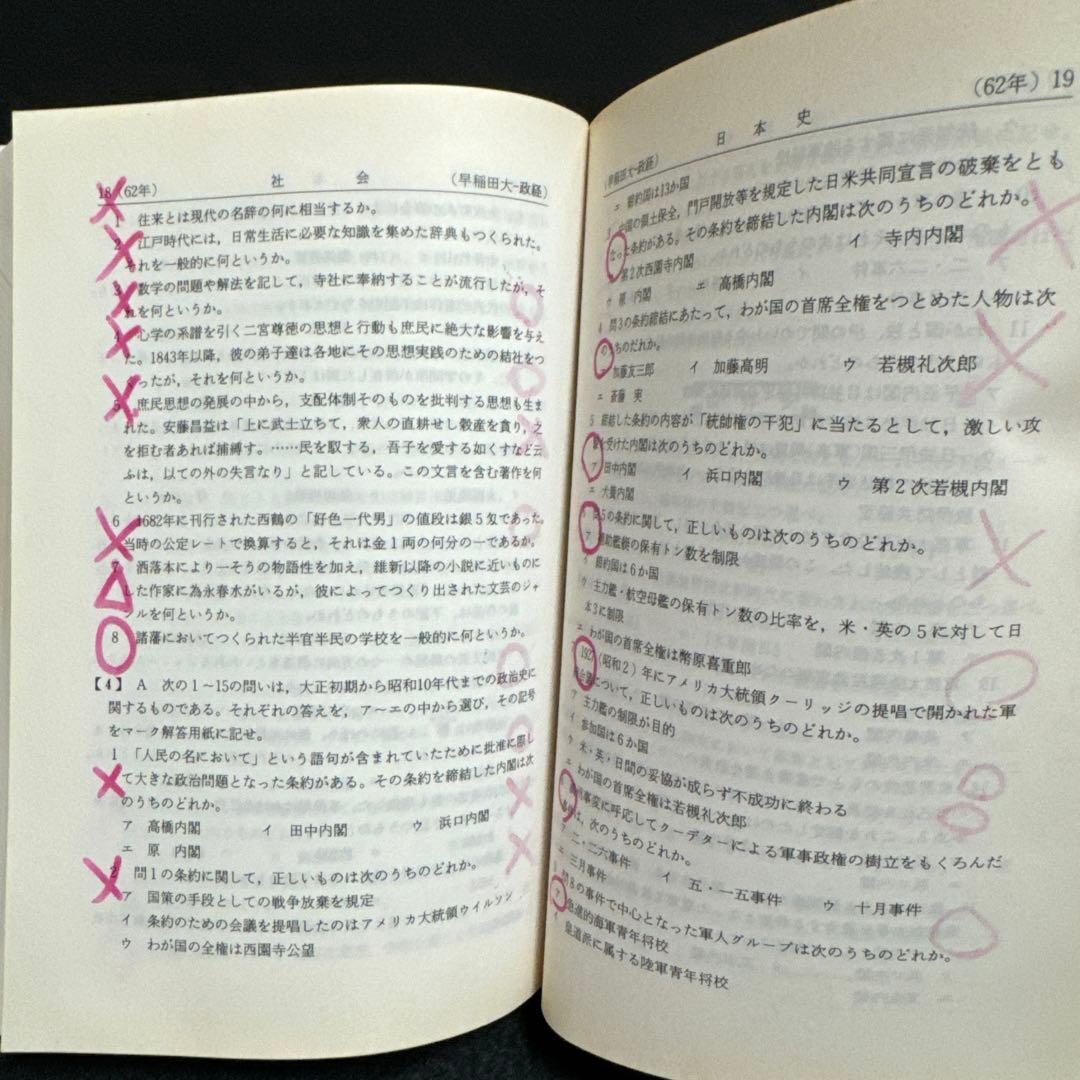 18 (62年) 社会 (早稲田大-政経)
1 往来とは現代の名辞の何に相当するか。
2 江戸時代には，日常生活に必要な知識を集めた辞典もつくられた。
それを一般的に何というか。
3 数学の問題や解法を記して，寺社に奉納することが流行したが，そ
れを何というか。
4 心学の系譜を引く二宮尊徳の思想と行動も庶民に絶大な影響を与え
た。1843年以降，彼の弟子達は各地にその思想実践のための結社をつ
くったが，それを何というか。
5 庶民思想の発展の中から，支配体制そのものを批判する思想も生ま
れた。安藤昌益は「上に武士立ちて，衆人の直耕せし穀産を貪り，之
を拒む者あれば捕縛す。……民を取する，吾子を愛する如くすなど云
ふは，以ての外の失言なり」と記している。この文言を含む著作を何
というか。
6 1682年に刊行された西鶴の「好色一代男」の値段は銀5匁であった。
当時の公定レートで換算すると，それは金1両の何分の一であるか。
7 洒落本により一そうの物語性を加え，維新以降の小説に近いものに
した作家に為永春水がいるが，彼によってつくり出された文芸のジャ
ンルを何というか。
8 諸藩においてつくられた半官半民の学校を一般的に何というか。
【4】 A 次の1～15の問いは，大正初期から昭和10年代までの政治史に
関するものである。それぞれの答えを，ア～エの中から選び，その記号
をマーク解答用紙に記せ。
1 「人民の名において」という語句が含まれていたために批准に際し
て大きな政治問題となった条約がある。その条約を締結した内閣は次
のうちのどれか。
ア 高橋内閣 イ 田中内閣 ウ 浜口内閣
エ 原 内閣
2 問1の条約に関して，正しいものは次のうちのどれか。
ア 国策の手段としての戦争放棄を規定
イ 条約のための会議を提唱したのはアメリカ大統領ウイルソン
ウ わが国の全権は西園寺公望
(早稲田大-政経) 日本史 (62年) 19
エ 締約国は13か国
3 中国の領土保全，門戸開放等を規定した日米共同宣言の破棄をとも
なった条約がある。その条約を締結した内閣は次のうちのどれか。
ア 第2次西園寺内閣 イ 寺内内閣
ウ 原 内閣 エ 高橋内閣
4 問3の条約締結にあたって，わが国の首席全権をつとめた人物は次
のうちのだれか。
ア 加藤友三郎 イ 加藤高明 ウ 若槻礼次郎
エ 斎藤 実
5 締結した条約の内容が「統帥権の干犯」に当たるとして，激しい攻
撃を受けた内閣は次のうちのどれか。
ア 田中内閣 イ 浜口内閣 ウ 第2次若槻内閣
エ 犬養内閣
6 問5の条約に関して，正しいものは次のうちのどれか。
ア 補助艦艇の保有トン数を制限
イ 締約国は6か国
ウ 主力艦・航空母艦の保有トン数の比率を，米・英の5に対して日
本3に制限
エ わが国の首席全権は幣原喜重郎
192 (昭和2)年にアメリカ大統領クーリッジの提唱で開かれた軍
縮会議について，正しいものは次のうちのどれか。
ア 主力艦の制限が目的
イ 参加国は6か国
ウ 米・英・日間の妥協が成らず不成功に終わる
エ わが国の首席全権は若槻礼次郎
事変に呼応してクーデターによる軍事政権の樹立をもくろんだ
は，次のうちのどれか。
ア 二・二六事件 イ 五・一五事件 ウ 十月事件
エ 三月事件
問8の事件で中心となった軍人グループは次のうちのどれか。
ア 急進的海軍青年将校
イ 皇道派に属する陸軍青年将校